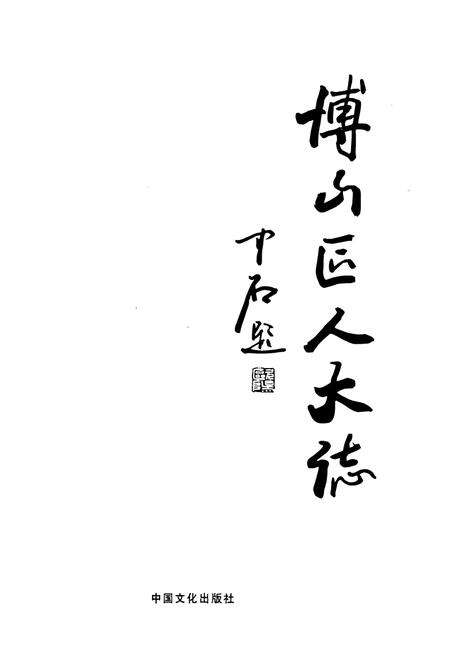 博山区人大誌
中石题
中国文化出版社